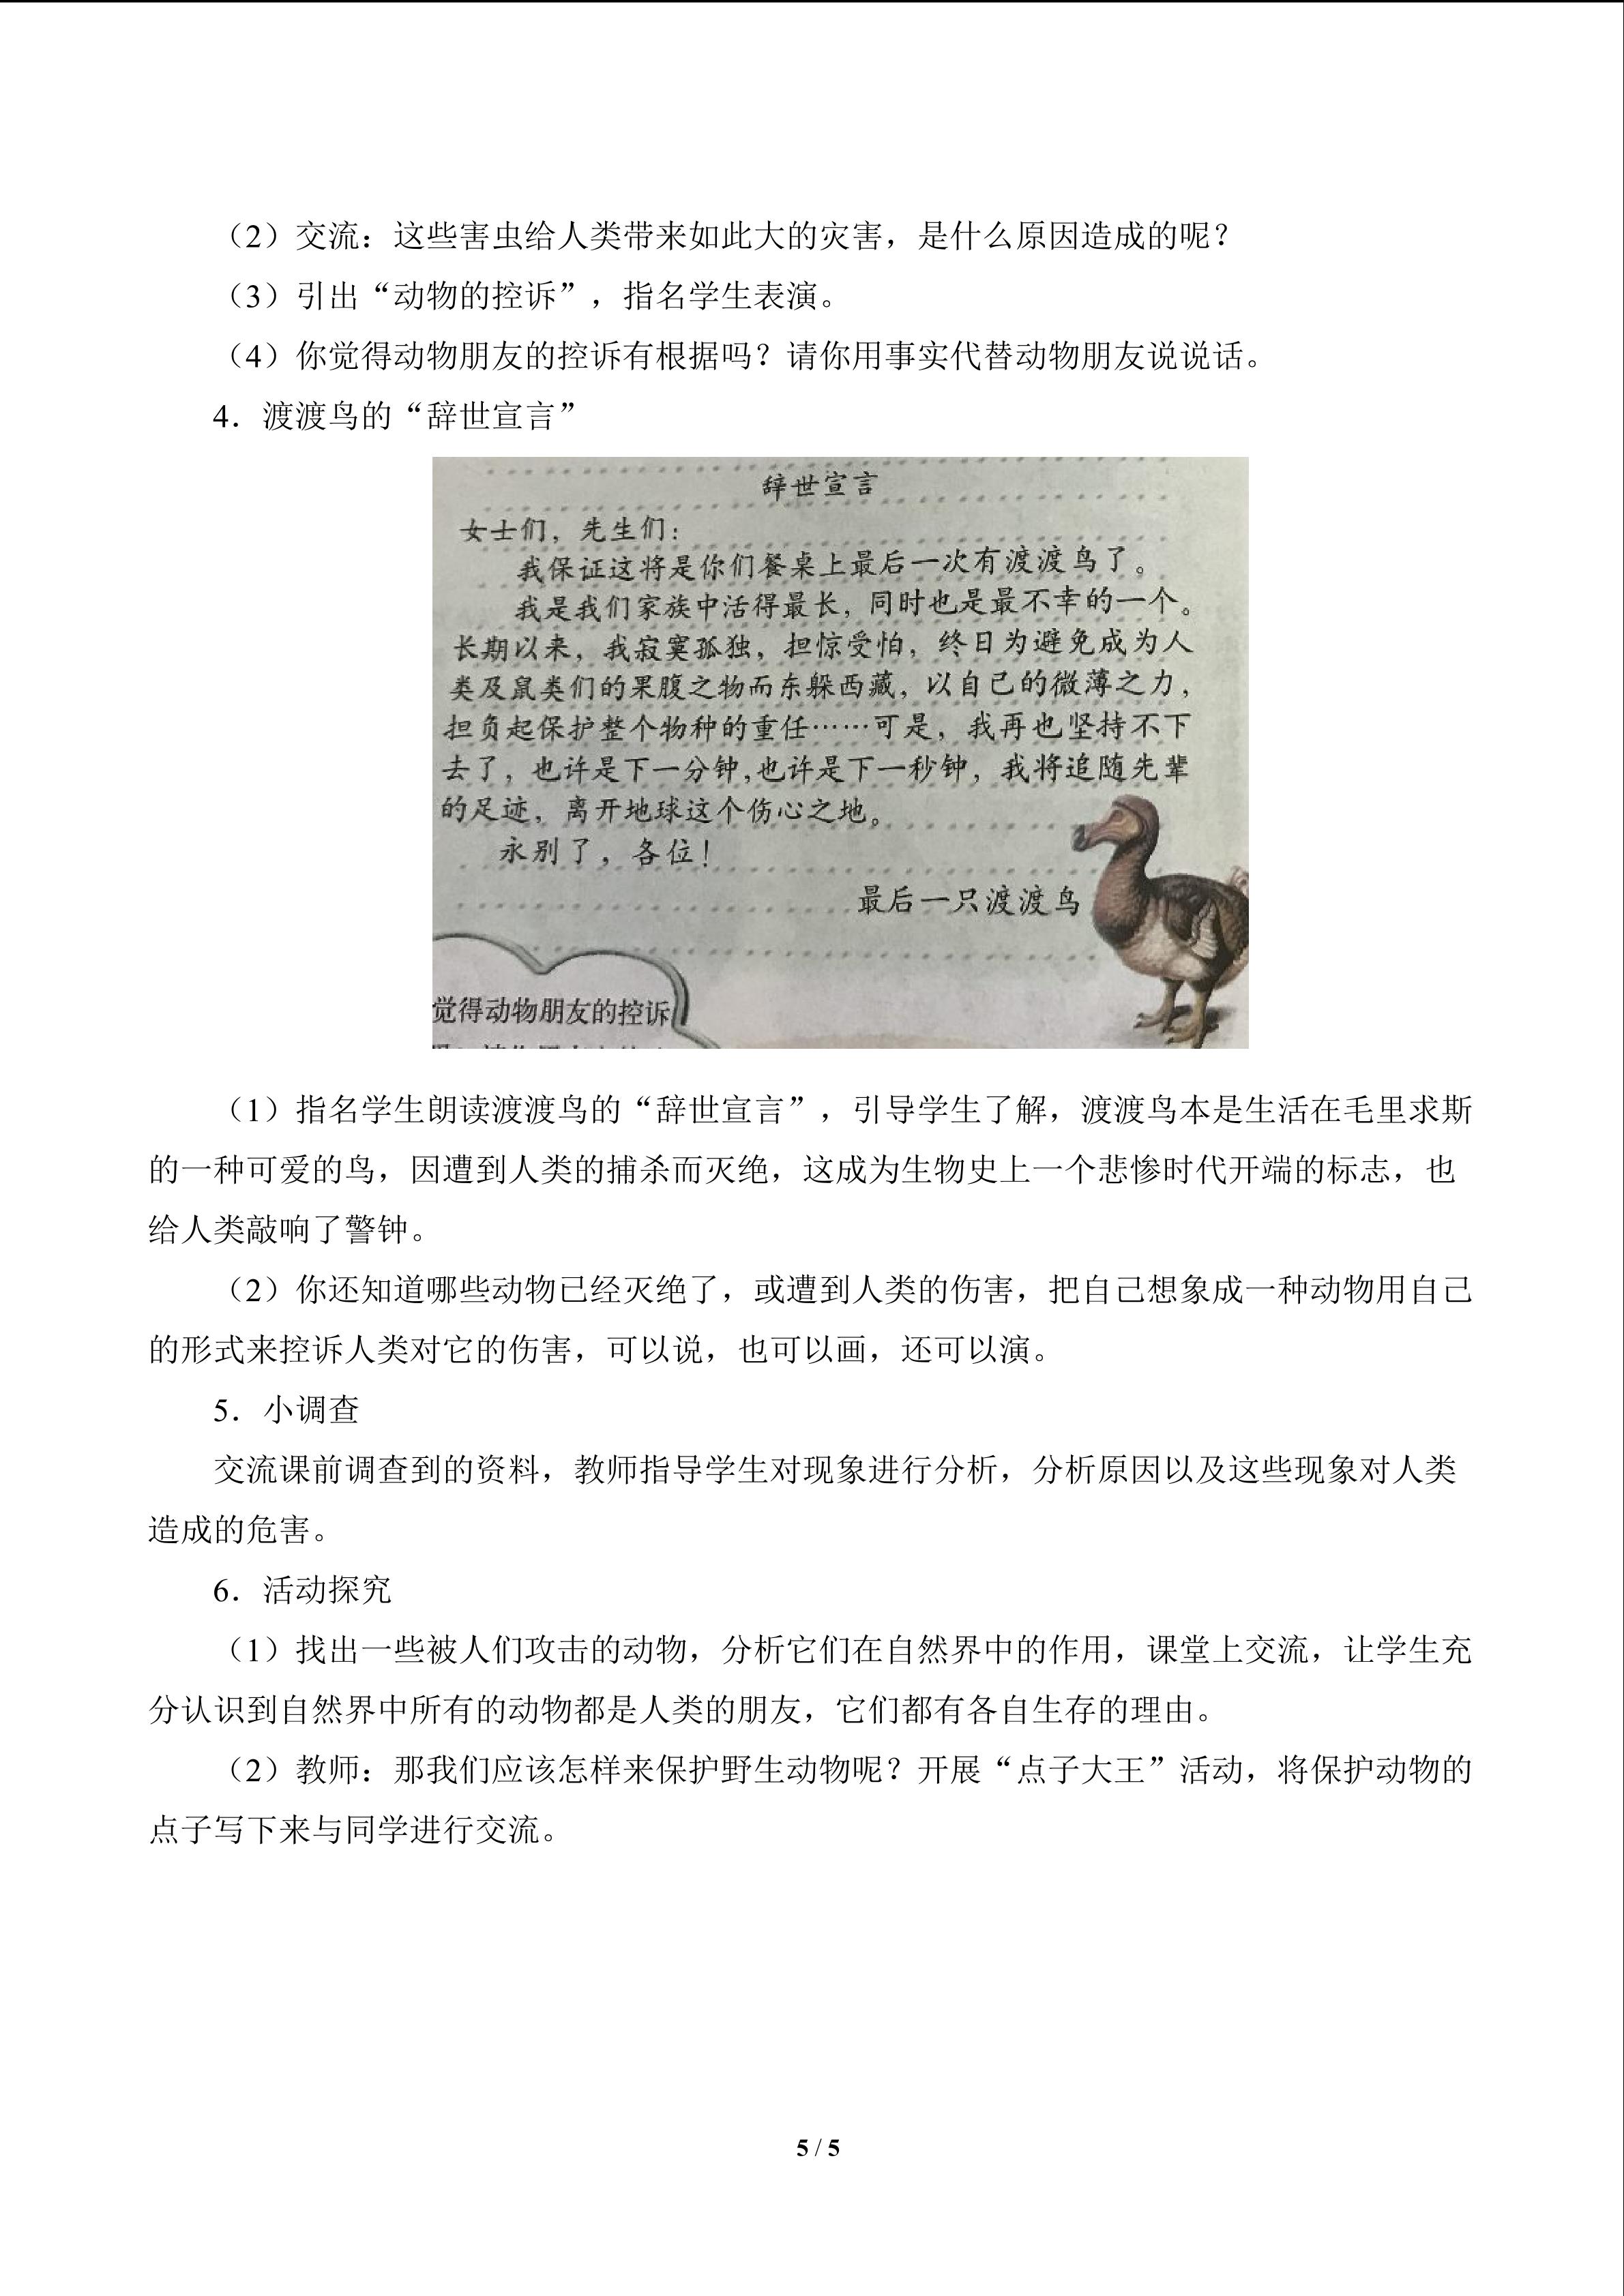 （2）交流：这些害虫给人类带来如此大的灾害，是什么原因造成的呢？
（3）引出“动物的控诉”，指名学生表演。
（4）你觉得动物朋友的控诉有根据吗？请你用事实代替动物朋友说说话。
4．渡渡鸟的“辞世宣言”
辞世宣言
女士们，先生们：
我保证这将是你们餐桌上最后一次有渡渡鸟了。
我是我们家族中活得最长，同时也是最不幸的一个。
长期以来，我寂寞孤独，担惊受怕，终日为避免成为人
类及鼠类们的果腹之物而东躲西藏，以自己的微薄之力，
担负起保护整个物种的重任……可是，我再也坚持不下
去了，也许是下一分钟,也许是下一秒钟，我将追随先辈
的足迹，离开地球这个伤心之地。
永别了，各位！
最后一只渡渡鸟
觉得动物朋友的控诉
（1）指名学生朗读渡渡鸟的“辞世宣言”，引导学生了解，渡渡鸟本是生活在毛里求斯
的一种可爱的鸟，因遭到人类的捕杀而灭绝，这成为生物史上一个悲惨时代开端的标志，也
给人类敲响了警钟。
（2）你还知道哪些动物已经灭绝了，或遭到人类的伤害，把自己想象成一种动物用自己
的形式来控诉人类对它的伤害，可以说，也可以画，还可以演。
5．小调查
交流课前调查到的资料，教师指导学生对现象进行分析，分析原因以及这些现象对人类
造成的危害。
6．活动探究
（1）找出一些被人们攻击的动物，分析它们在自然界中的作用，课堂上交流，让学生充
分认识到自然界中所有的动物都是人类的朋友，它们都有各自生存的理由。
（2）教师：那我们应该怎样来保护野生动物呢？开展“点子大王”活动，将保护动物的
点子写下来与同学进行交流。
5 / 5